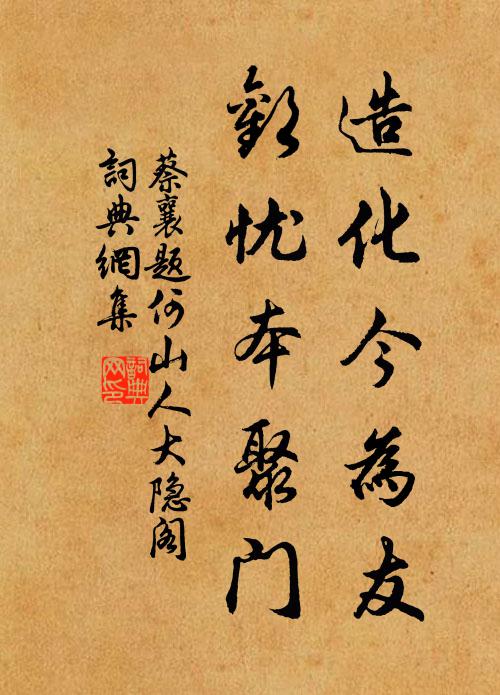 造化今為友
歡忧本聚门
蔡襄题何山人大隐阁
詞典網集
詞典网印